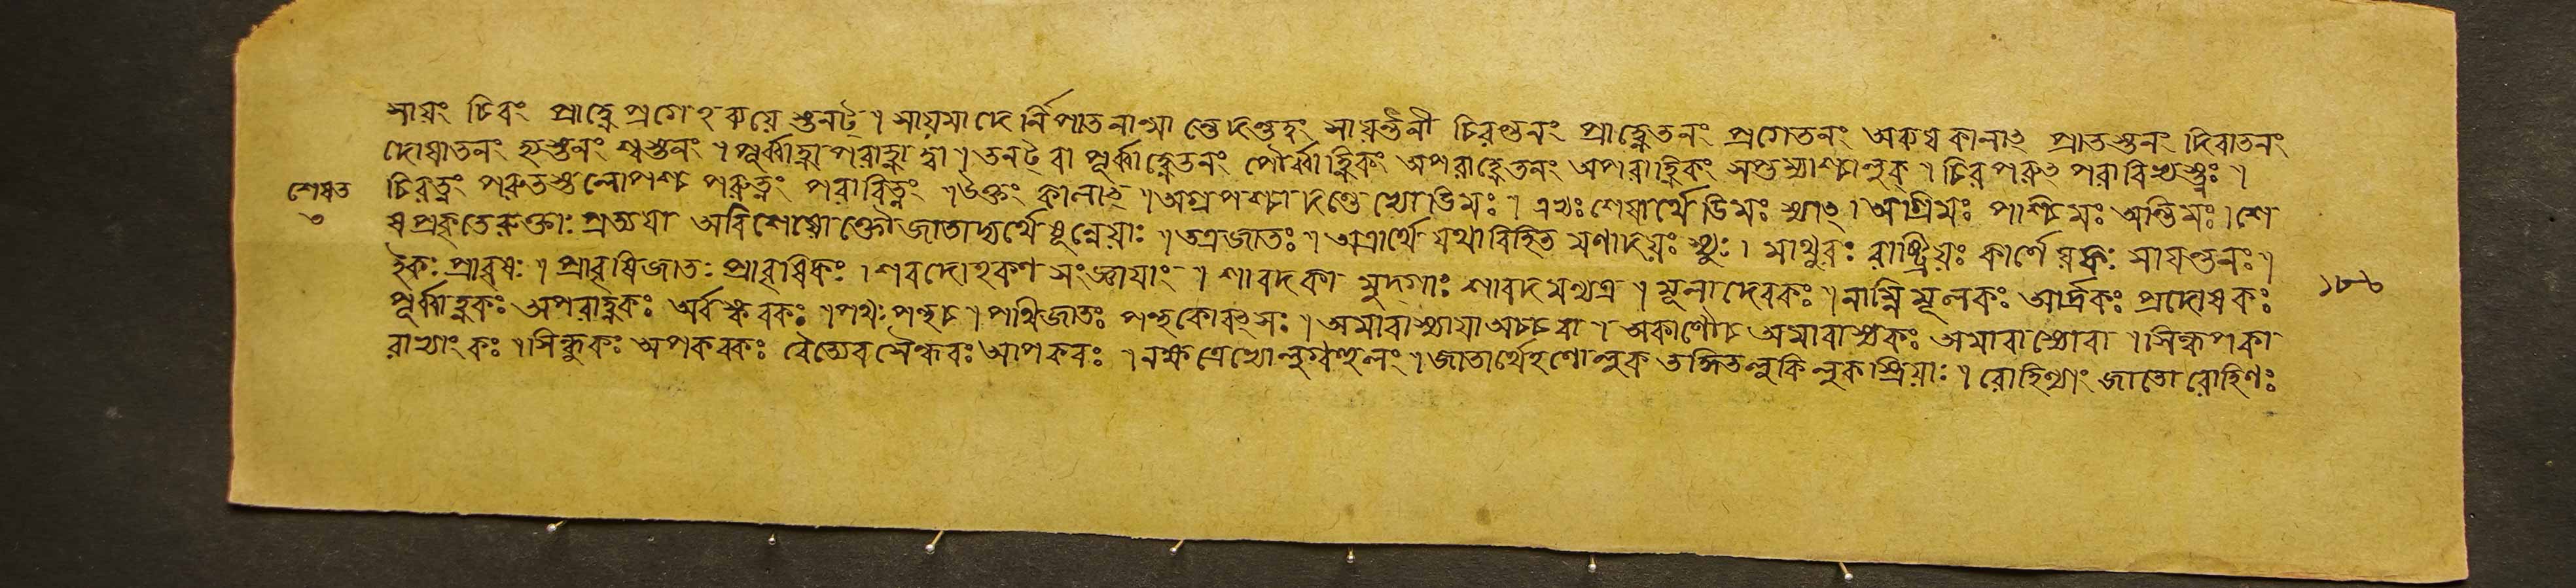 সায়ং চিরং প্রাহ্নে প্রগেহব্যয়ে স্তনট্। সায়মাদে র্নিপাতনান্মা ন্তেদন্তত্বং সায়ন্তনী চিরন্তনং প্রাহ্নেতনং প্রগেতনং অব্যয় কানাৎ প্রাতস্তনং দিবাতনং
দোষাতনং হ্যস্তনং শ্বস্তনং । পূর্ব্বাহ্না পরাহ্না দ্বা । তনট্ বা পূর্ব্বাহ্নেতনং পৌর্ব্বাহ্নিকং অপরাহ্নেতনং অপরাহ্নিকং সপ্তম্যাশ্চালুক্ । চির পরুৎ পরারিভ্যস্ত্নঃ ।
চিরত্নং পরুতস্তলোপশ্চ পরুত্নং পরারিত্নং । উক্তং কালাৎ । অগ্র পশ্চা দন্তেভ্যোডিমঃ । এভ্যঃ শেষার্থে ডিমঃ স্যাৎ । অগ্রিমঃ পাশ্চিমঃ অন্তিমঃ । শে
ষ প্রকৃতেরুক্তাঃ প্রত্যয়া অবিশেষোক্তৌ জাতাদ্যর্থে ষূন্নেয়াঃ । তত্রজাতঃ । অত্রার্থে যথাবিহিত মণাদয়ঃ স্যুঃ । মাথুরঃ রাষ্ট্রিয়ঃ কার্ণে য়কঃ সায়ন্তনঃ ।
ইকঃ প্রাবৃষঃ । প্রাবৃষিজাতঃ প্রাবৃষিকঃ । শরদোহকণ সংজ্ঞায়াং । শারদকা মুদ্গাঃ শারদমন্যত্র । মূলাদেরকঃ । নাম্নি মূলকঃ আর্দ্রকঃ প্রদোষকঃ
পূর্ব্বাহ্নকঃ অপরাহ্নকঃ অবস্করকঃ । পথঃ পন্থ চ । পথিজাতঃ পন্থকোবৎসঃ । অমাবাস্যায়া অচ্চ বা । অকাণৌচ অমাবাস্যকঃ অমাবাস্যোবা । সিন্ধ্বপকা
রাভ্যাং কঃ । সিন্ধুকঃ অপকরকঃ বেত্যেব সৈন্ধবঃ আপকরঃ । নক্ষত্রেভ্যোলুগ্বহুলং । জাতার্থেহণোলুক তদ্ধিতলুকি লুক স্ত্রিয়াঃ । রোহিণ্যাং জাতো রোহিণঃ
শেষত
৩
১৮৮